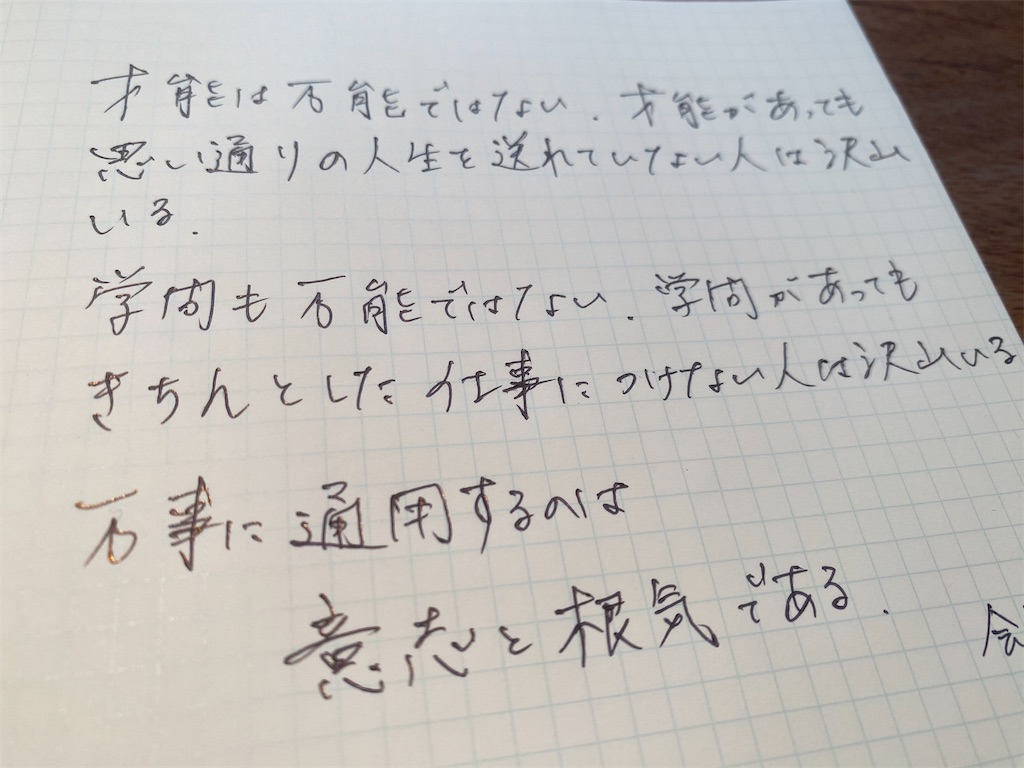 才能は万能ではない. 才能があっても
思い通りの人生を送れていない人は沢山
いる.
学問も万能ではない. 学問があっても
きちんとした仕事につけない人は沢山いる
万事に通用するのは
意志と根気である.
会